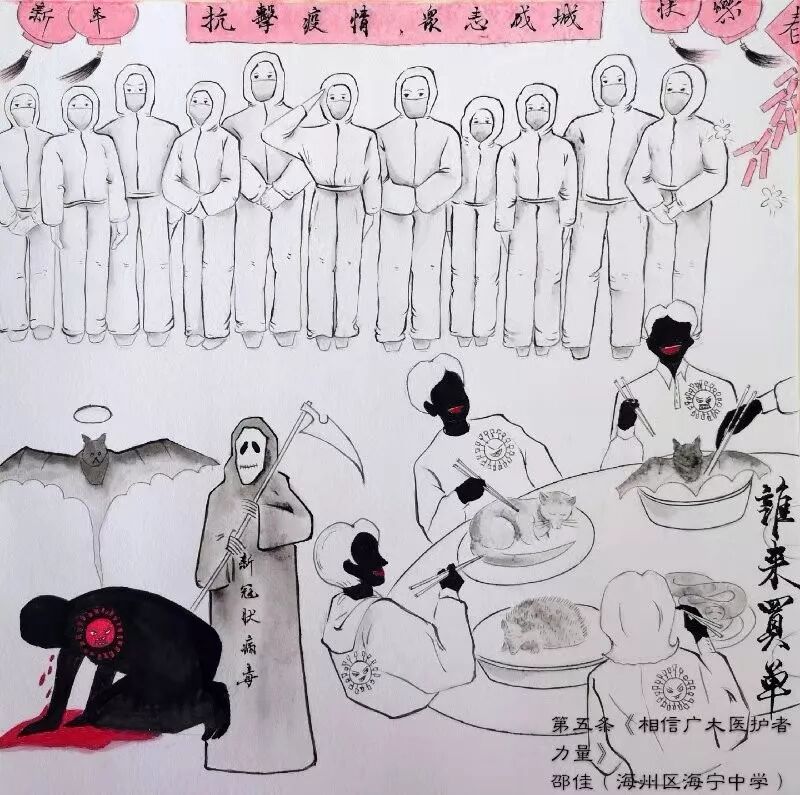 新年
抗擊疫情、衆志成城
快樂
春
新冠狀病毒
誰来買单
第五条《相信广大医护者
力量》
邵佳(海州区海宁中学)